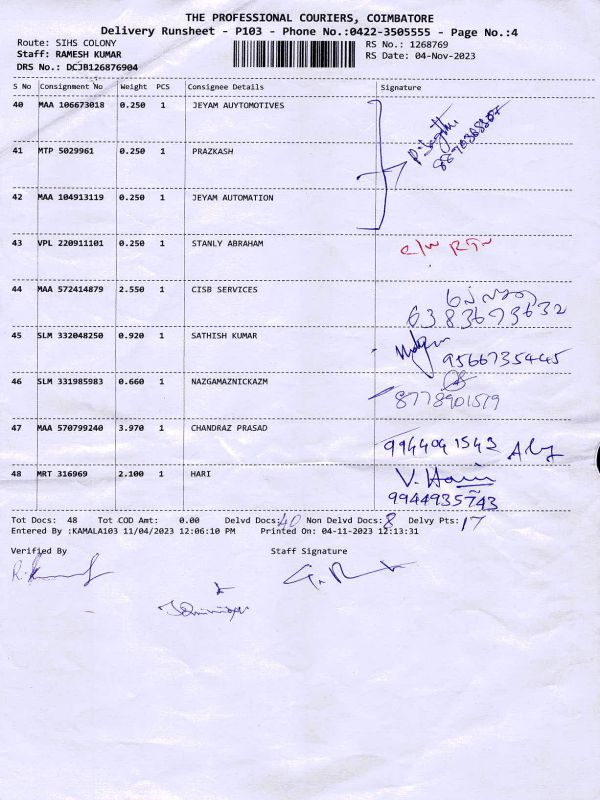 THE PROFESSIONAL COURIERS, COIMBATORE
Delivery Runsheet - P103 - Phone No.:0422-3505555 - Page No.:4
Route: SIHS COLONY
RS No.: 1268769
Staff: RAMESH KUMAR
RS Date: 04-Nov-2023
DRS No.: DCJB126876904
S No Consignment No Weight PCS Consignee Details Signature
40 MAA 106673018 0.250 1 JEYAM AUYTOMOTIVES
41 MTP 5029961 0.250 1 PRAZKASH
42 MAA 104913119 0.250 1 JEYAM AUTOMATION
43 VPL 220911101 0.250 1 STANLY ABRAHAM
44 MAA 572414879 2.550 1 CISB SERVICES
6383673632
45 SLM 332048250 0.920 1 SATHISH KUMAR
9566735445
46 SLM 331985983 0.660 1 NAZGAMAZNICKAZM
8778901579
47 MAA 570799240 3.970 1 CHANDRAZ PRASAD
9944041543
48 MRT 316969 2.100 1 HARI V. Hari
9944935743
Tot Docs: 48 Tot COD Amt: 0.00 Delvd Docs: 40 Non Delvd Docs: 8 Delvy Pts: 17
Entered By :KAMALA103 11/04/2023 12:06:10 PM Printed On: 04-11-2023 12:13:31
Verified By Staff Signature